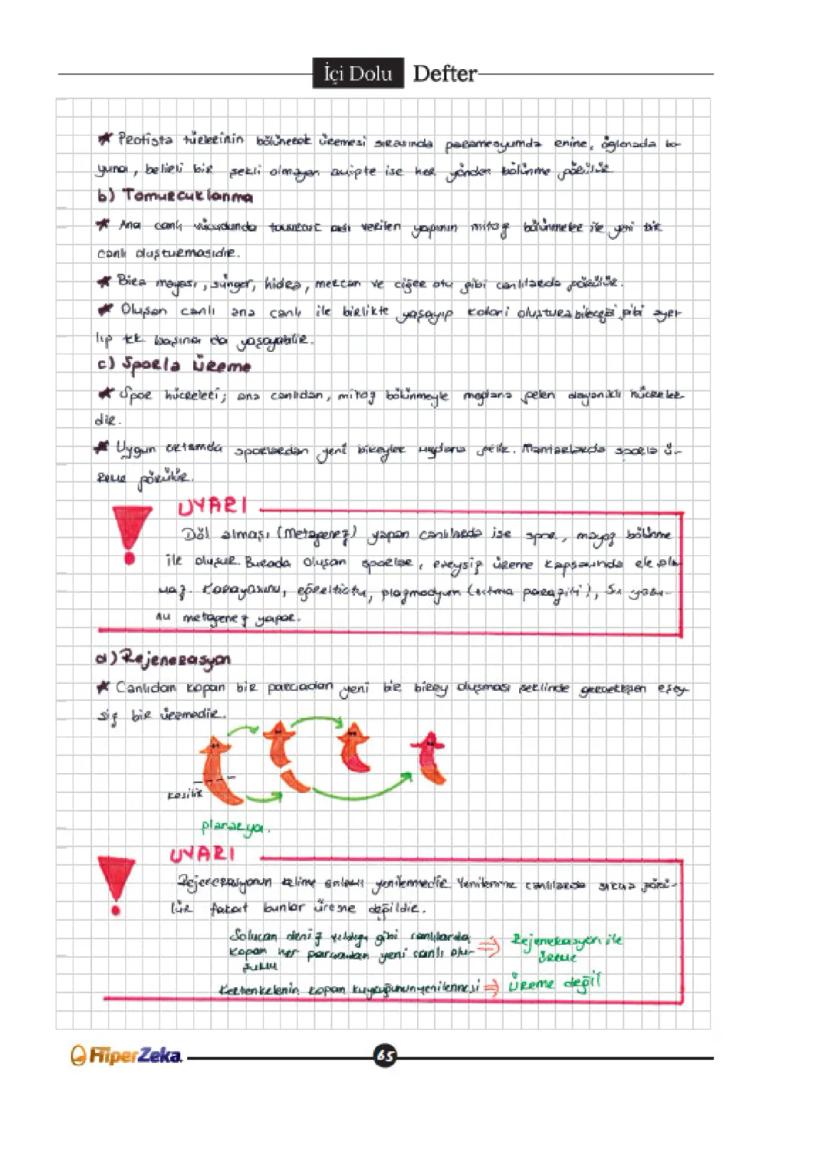 İçi Dolu Defter
★ Protista türlerinin bölünerek üremesi sırasında paramesyumda enine, öglenada bo-
yuna, belirli bir şekli olmayan amipte ise her yönden bölünme görülür.
b) Tomurcuklanma
★ Ana canlı vücudunda tomurcuk adı verilen yapının mitoz bölünmeler ile yeni bir
canlı oluşturmasıdır.
★ Bira mayası, sünger, hidra, mercan ve ciğer otu gibi canlılarda görülür.
★ Oluşan canlı ana canlı ile birlikte yaşayıp koloni oluşturabileceği gibi ayrı-
lıp tek başına da yaşayabilir.
c) Sporla Üreme
★ Spor hücreleri; ana canlıdan, mitoz bölünmeyle meydana gelen dayanıklı hücreler-
dir.
★ Uygun ortamda sporlardan yeni bireyler meydana gelir. Mantarlarda sporla ü-
reme görülür.
UYARI
Döl almaşı (Metagenez) yapan canlılarda ise spor, mayoz bölünme
ile oluşur. Burada oluşan sporlar, eşeysiz üreme kapsamında ele alın-
maz. Karayosunu, eğreltiotu, plazmodyum (sıtma paraziti), su yosu-
nu metagenez yapar.
d) Rejenerasyon
★ Canlıdan kopan bir parçadan yeni bir birey oluşması şeklinde gerçekleşen eşey-
siz bir üremedir.
kesilir
planarya.
UYARI
Rejenerasyonun kelime anlamı yenilenmedir. Yenilenme canlılarda sıkça görü-
lür fakat bunlar üreme değildir.
Solucan deniz yıldızı gibi canlılarda ⇒ Rejenerasyon ile
kopan her parçadan yeni canlı olu- üreme
şumu
Kertenkelenin kopan kuyruğunun yenilenmesi ⇒ üreme değil
HiperZeka
65